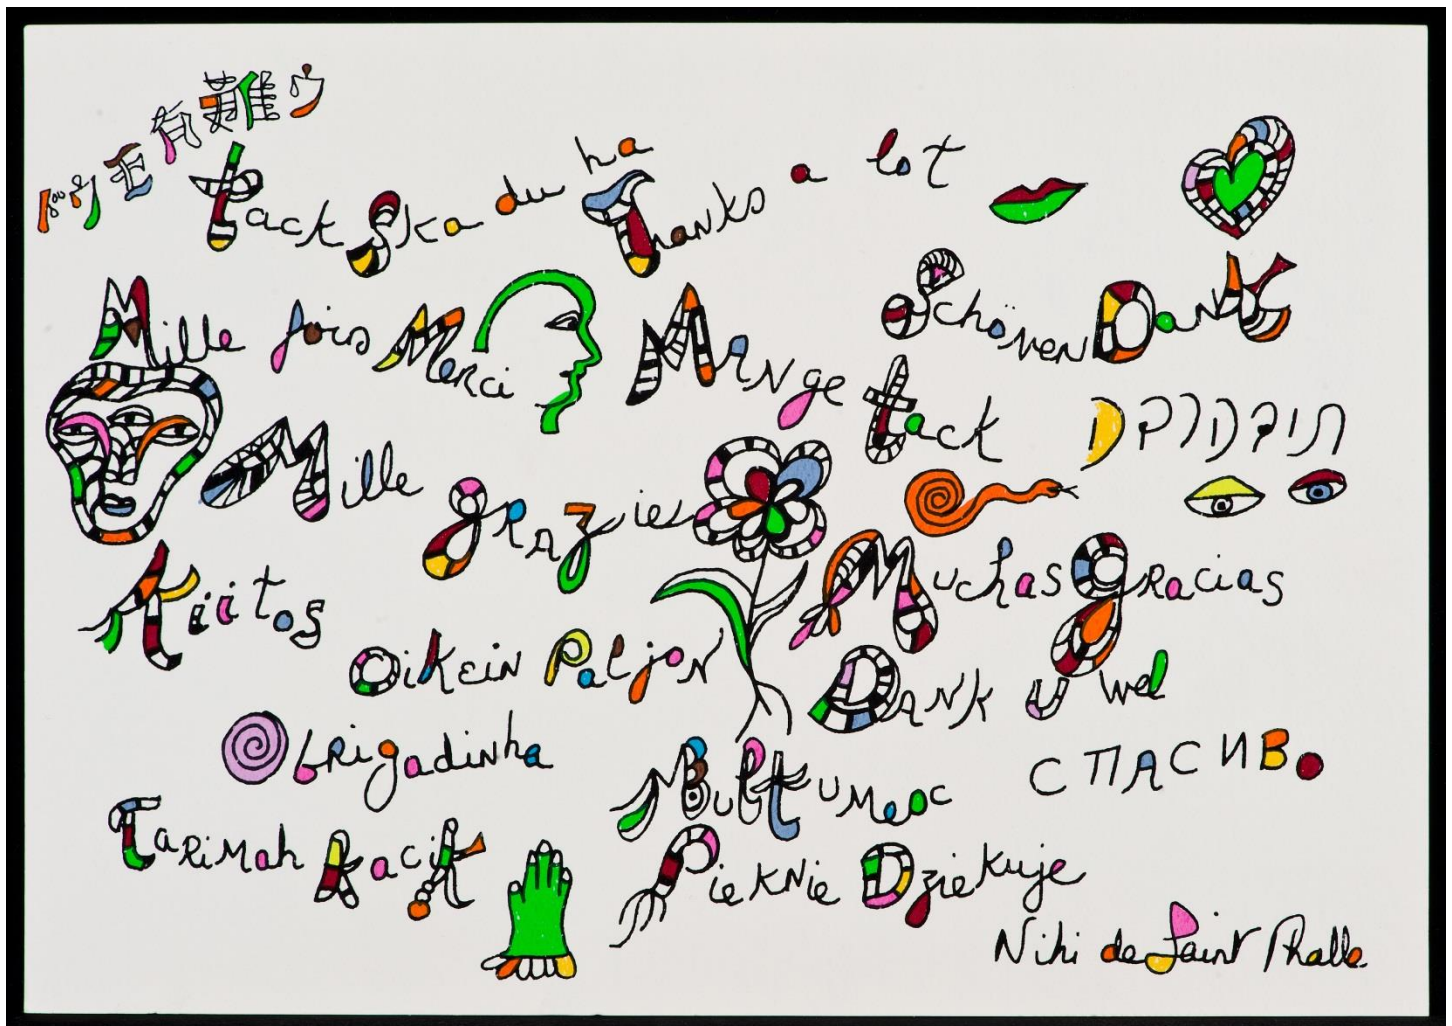 有難う
tack Ska du ha Thanks a lot
Mille fois Merci
Schönen Dank
Mange tack
Mille grazie
Muchas gracias
Kiitos
Oikein Paljon
Dank u wel
Obrigadinha
Multumesc
СПАСИВо
Tarimah Kacik
Pieknie Dziekuje
Niki de Saint Phalle